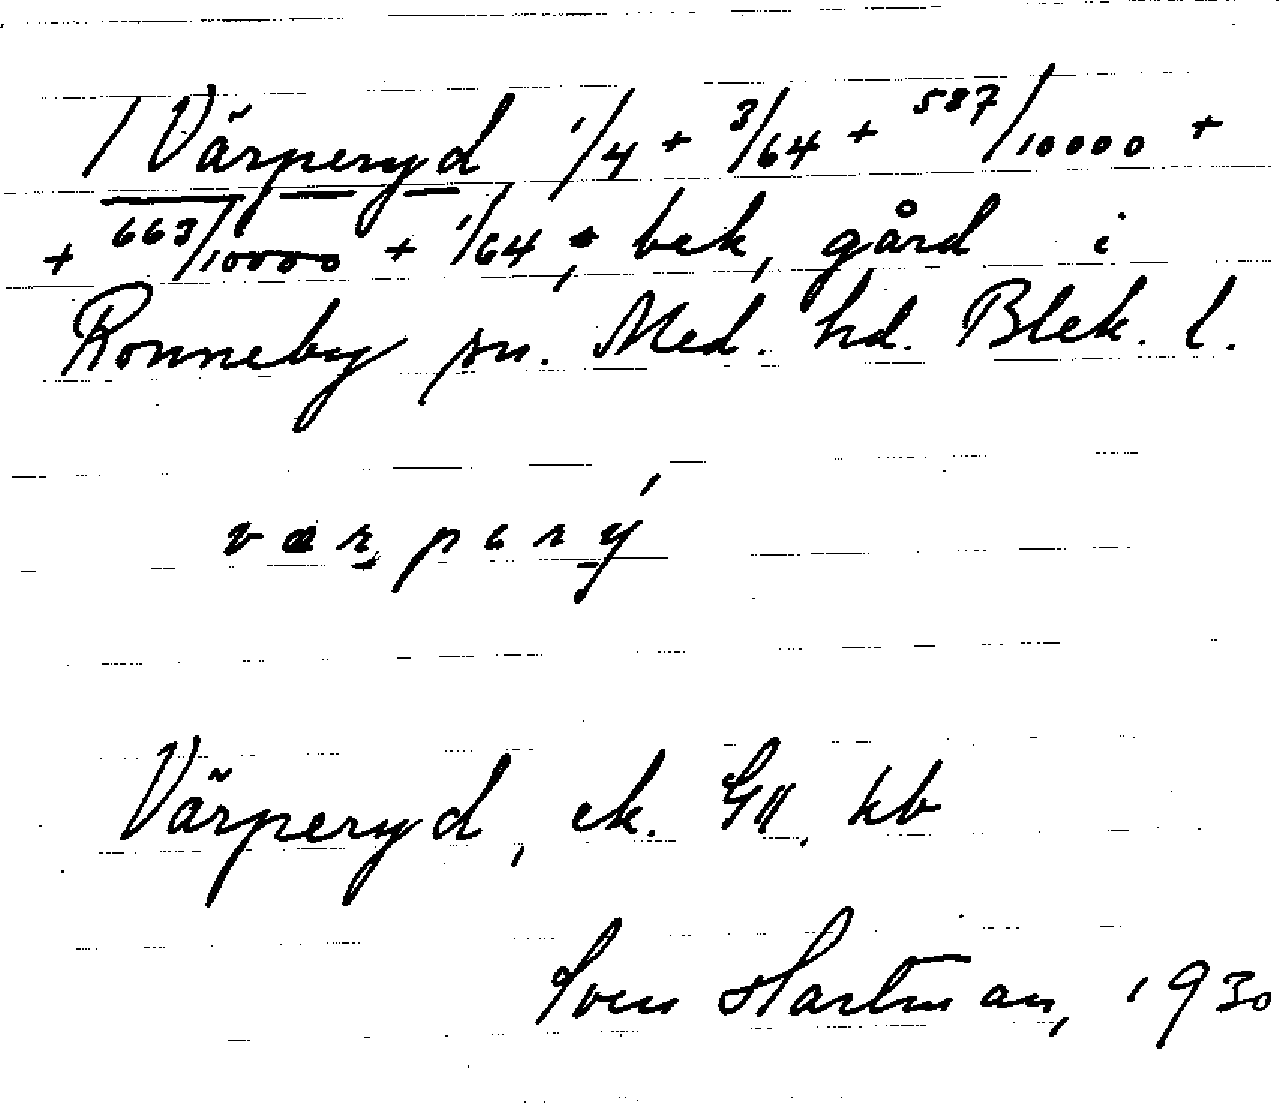 / Värperyd 1/4 + 3/64 + 587/10000 +
+ 663/10000 + 1/64, bek, gård i
Ronneby sn. Med. hd. Blek. l.
værperý
Värperyd, ek. kb
Sven Hartman, 1930